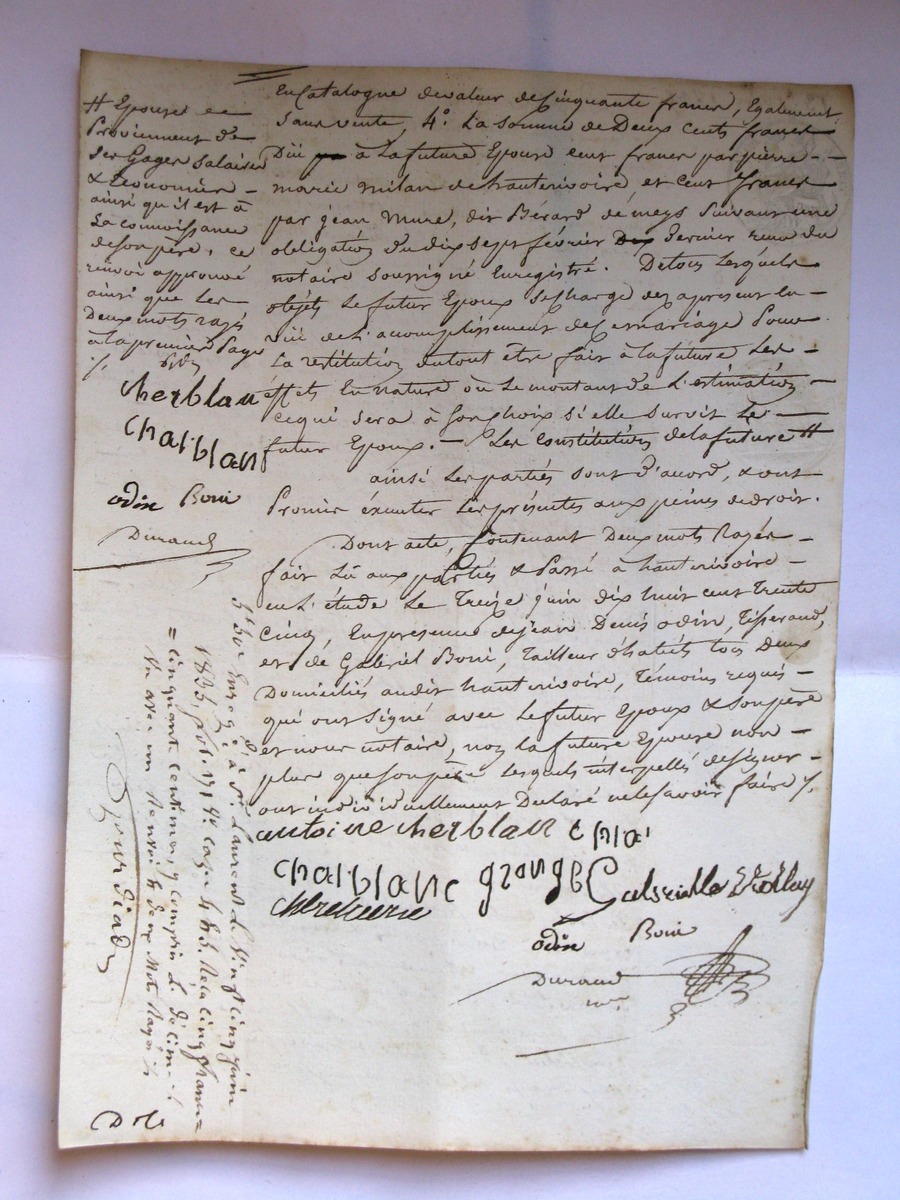 en Catalogue de valeur de Cinquante francs, Egalement
sans vente, 4.º La somme de Deux cents francs
Dûe à La future Epouse cent francs par pierre
marie milan de hauterivoire et cent francs
par jean mure, dit Bérard de meys Suivant une
obligation du dix sept février dernier reçue du
notaire soussigné Enregistré. De tous Lesquels
objets Le futur Epoux se charge dez apresent En
vüe de L'acomplissement de Ce mariage Pour
La restitution du tout être fait à La future Les
effets En nature où Le montant de L'estimation
ce qui sera à son choix si elle survit Le
futur Epoux. — Les Constitutions de La future #
ainsi Les parties sont d'acord, & ont
Promis éxécuter Les présentes aux peines de droit.
Dont acte, Contenant Deux mots Rayés
fait Lû aux parties & Passé à hauterivoire
en L'étude Le Treize juin dix huit cent Trente
Cinq, En présence de jean Denis odin, Tisserand,
et de Gabriel Boni, Tailleur d'habits tous Deux
Domiciliés audit hauterivoire, Témoins requis
qui ont Signé avec Le futur Epoux & son père
et nous notaire, non La future Epouse non
plus que son père Lesquels interpellés de signer
ont individuellement Déclaré ne Le savoir faire /.
antoine cherblan
chalblanc grange
odin Boni
Durand
nre
# Epouse
Proviennent de
Ses Gages Salaires
& Economies
ainsi qu'il est à
La connoissance
de son père, ce
renvoi approuvé
ainsi que Les
Deux mots rayés
à La premiere Page
/.
cherblan
chalblan
odin Boni
Durand
Enregé à St Laurent Le vingt cinq juin
1835, fol. 171 Rº Case 4 & 5. Reçu cinq francs
= cinquante centimes, y compris Le décime
avec un Renvoi & deux Mots Rayés